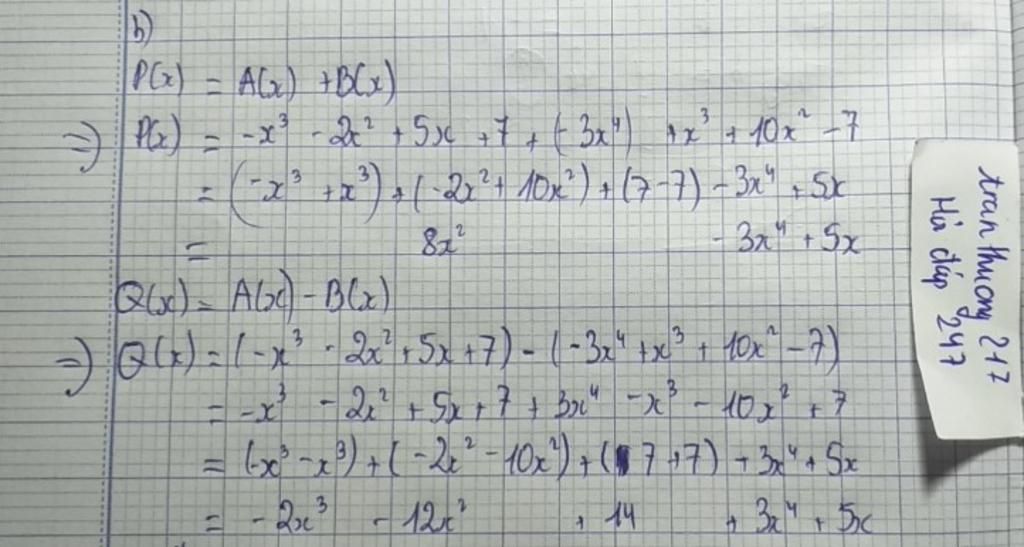 b)
P(x) = A(x) + B(x)
=) P(x) = -x³ - 2x² + 5x + 7 + (-3x⁴) + x³ + 10x² - 7
= (-x³ + x³) + (-2x² + 10x²) + (7 - 7) - 3x⁴ + 5x
= 8x² - 3x⁴ + 5x
Q(x) = A(x) - B(x)
=) Q(x) = (-x³ - 2x² + 5x + 7) - (-3x⁴ + x³ + 10x² - 7)
= -x³ - 2x² + 5x + 7 + 3x⁴ - x³ - 10x² + 7
= (-x³ - x³) + (-2x² - 10x²) + (7 + 7) + 3x⁴ + 5x
= -2x³ - 12x² + 14 + 3x⁴ + 5x
tran thuong 217
Hỏi đáp 247